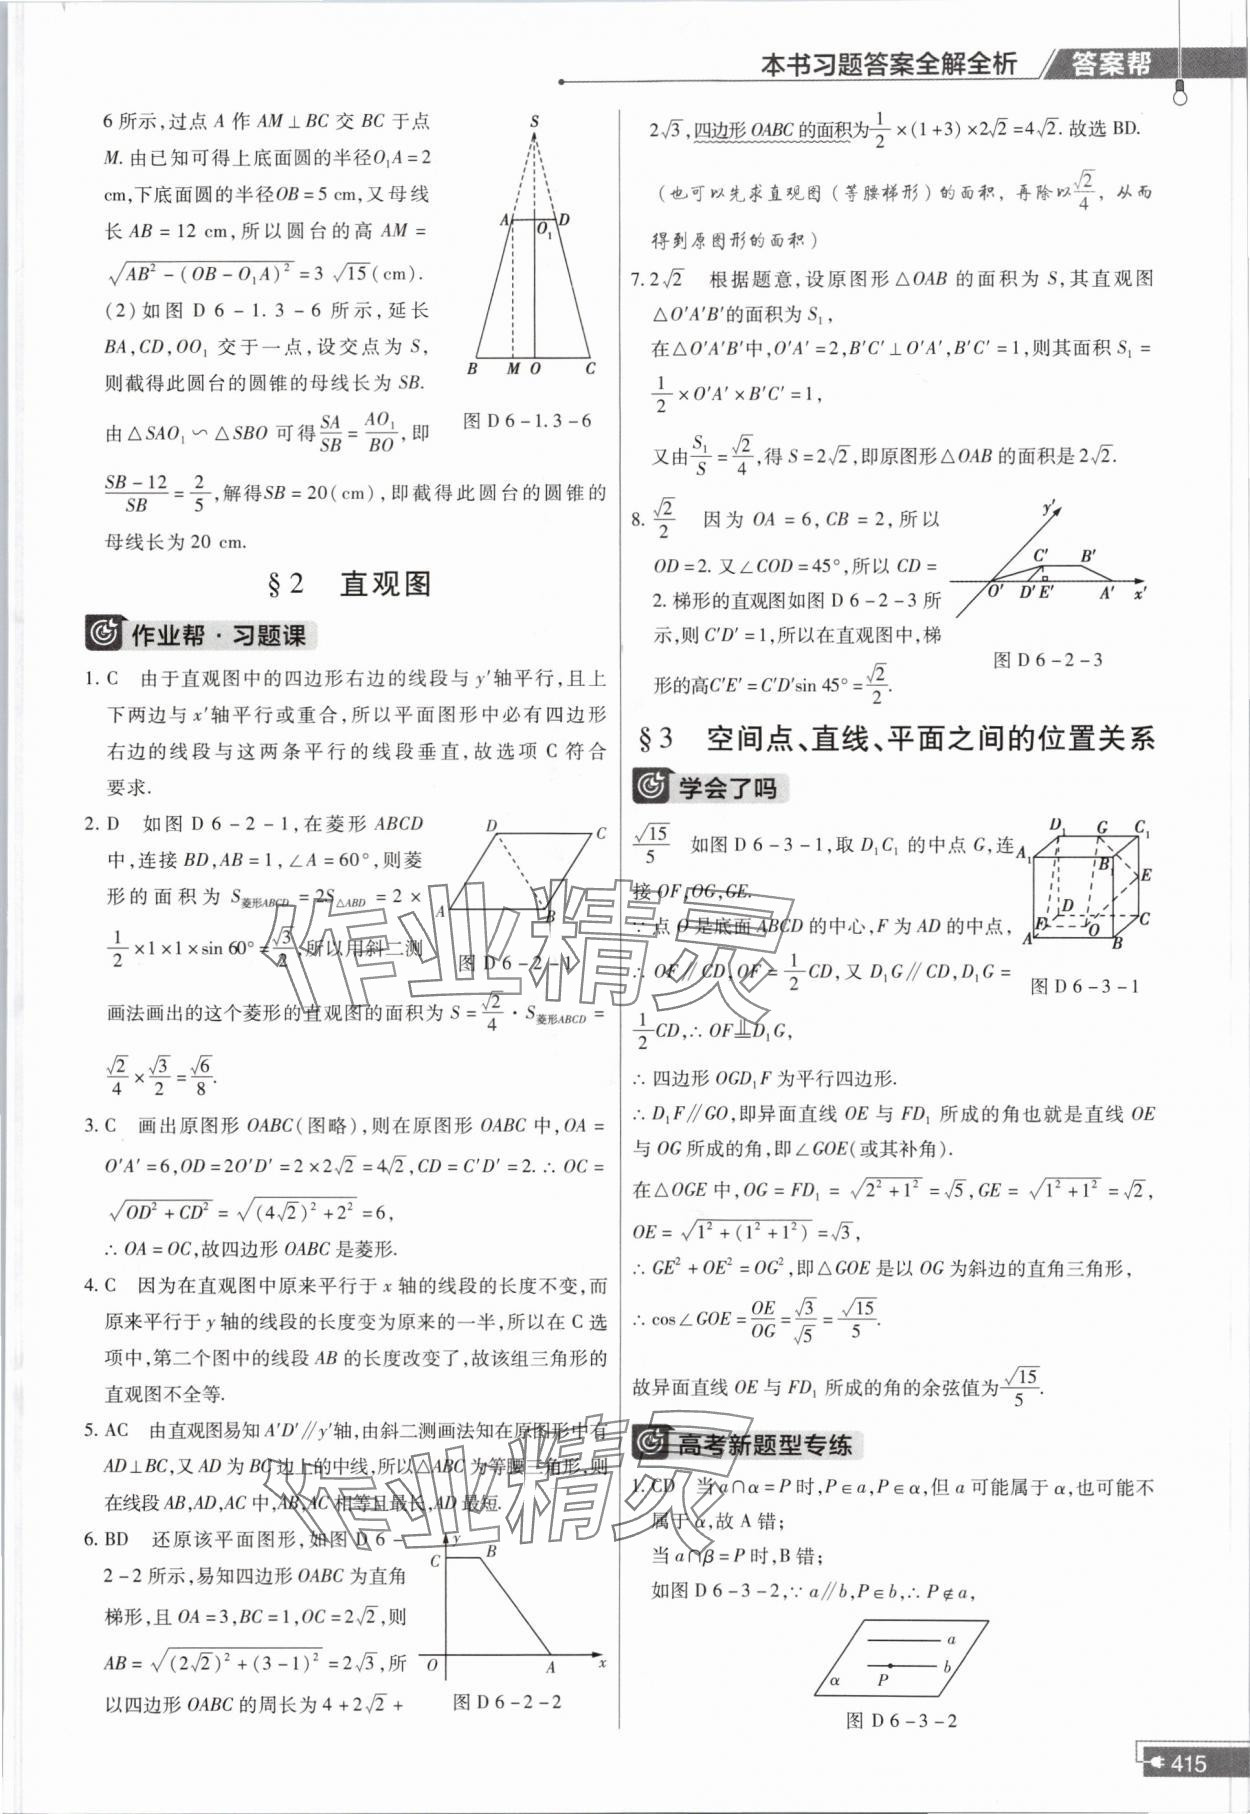 本书习题答案全解全析 答案帮
6 所示,过点 A 作 AM⊥BC 交 BC 于点
M. 由已知可得上底面圆的半径O₁A = 2
cm,下底面圆的半径OB = 5 cm,又母线
长 AB = 12 cm,所以圆台的高 AM =
√(AB² - (OB - O₁A)²) = 3 √15(cm).
(2)如图 D 6 - 1. 3 - 6 所示,延长
BA,CD,OO₁ 交于一点,设交点为 S,
则截得此圆台的圆锥的母线长为 SB.
由△SAO₁ ∽ △SBO 可得 SA/SB = AO₁/BO,即
(SB - 12)/SB = 2/5,解得SB = 20(cm),即截得此圆台的圆锥的
母线长为 20 cm.
S
A O₁ D
B M O C
图 D 6 - 1. 3 - 6
§2 直观图
作业帮·习题课
1. C 由于直观图中的四边形右边的线段与 y′轴平行,且上
下两边与 x′轴平行或重合,所以平面图形中必有四边形
右边的线段与这两条平行的线段垂直,故选项 C 符合
要求.
2. D 如图 D 6 - 2 - 1,在菱形 ABCD
中,连接 BD,AB = 1,∠A = 60°,则菱
形的面积为 S菱形ABCD = 2S△ABD = 2 ×
1/2 × 1 × 1 × sin 60° = √3/2,所以用斜二测
画法画出的这个菱形的直观图的面积为 S = √2/4 · S菱形ABCD =
√2/4 × √3/2 = √6/8.
D C
A B
图 D 6 - 2 - 1
3. C 画出原图形 OABC(图略),则在原图形 OABC 中,OA =
O′A′ = 6,OD = 2O′D′ = 2 × 2√2 = 4√2,CD = C′D′ = 2. ∴ OC =
√(OD² + CD²) = √((4√2)² + 2²) = 6,
∴ OA = OC,故四边形 OABC 是菱形.
4. C 因为在直观图中原来平行于 x 轴的线段的长度不变,而
原来平行于 y 轴的线段的长度变为原来的一半,所以在 C 选
项中,第二个图中的线段 AB 的长度改变了,故该组三角形的
直观图不全等.
5. AC 由直观图易知 A′D′∥y′轴,由斜二测画法知在原图形中有
AD⊥BC,又 AD 为 BC 边上的中线,所以△ABC 为等腰三角形,则
在线段 AB,AD,AC 中,AB,AC 相等且最长,AD 最短.
6. BD 还原该平面图形,如图 D 6 -
2 - 2 所示,易知四边形 OABC 为直角
梯形,且 OA = 3,BC = 1,OC = 2√2,则
AB = √((2√2)² + (3 - 1)²) = 2√3,所
以四边形 OABC 的周长为 4 + 2√2 +
y
C B
O A x
图 D 6 - 2 - 2
2√3,四边形 OABC 的面积为 1/2 × (1 + 3) × 2√2 = 4√2. 故选 BD.
(也可以先求直观图(等腰梯形)的面积,再除以 √2/4,从而
得到原图形的面积)
7. 2√2 根据题意,设原图形△OAB 的面积为 S,其直观图
△O′A′B′的面积为 S₁,
在△O′A′B′中,O′A′ = 2,B′C′⊥O′A′,B′C′ = 1,则其面积 S₁ =
1/2 × O′A′ × B′C′ = 1,
又由 S₁/S = √2/4,得 S = 2√2,即原图形△OAB 的面积是 2√2.
8. √2/2 因为 OA = 6,CB = 2,所以
OD = 2. 又∠COD = 45°,所以 CD =
2. 梯形的直观图如图 D 6 - 2 - 3 所
示,则 C′D′ = 1,所以在直观图中,梯
形的高C′E′ = C′D′sin 45° = √2/2.
y′
C′ B′
O′ D′ E′ A′ x′
图 D 6 - 2 - 3
§3 空间点、直线、平面之间的位置关系
学会了吗
√15/5 如图 D 6 - 3 - 1,取 D₁C₁ 的中点 G,连
接 OF,OG,GE.
∵ 点 O 是底面 ABCD 的中心,F 为 AD 的中点,
∴ OF∥CD,OF = 1/2 CD,又 D₁G∥CD,D₁G =
1/2 CD,∴ OF⫫D₁G,
∴ 四边形 OGD₁F 为平行四边形.
∴ D₁F∥GO,即异面直线 OE 与 FD₁ 所成的角也就是直线 OE
与 OG 所成的角,即∠GOE(或其补角).
在△OGE 中,OG = FD₁ = √(2² + 1²) = √5,GE = √(1² + 1²) = √2,
OE = √(1² + (1² + 1²)) = √3,
∴ GE² + OE² = OG²,即△GOE 是以 OG 为斜边的直角三角形,
∴ cos∠GOE = OE/OG = √3/√5 = √15/5.
故异面直线 OE 与 FD₁ 所成的角的余弦值为 √15/5.
D₁ G C₁
A₁ B₁
E
D C
F O
A B
图 D 6 - 3 - 1
高考新题型专练
1. CD 当 a∩α = P 时,P∈a,P∈α,但 a 可能属于 α,也可能不
属于 α,故 A 错;
当 a∩β = P 时,B 错;
如图 D 6 - 3 - 2,∵ a∥b,P∈b,∴ P∉a,
a
α P b
图 D 6 - 3 - 2
415
作业精灵
作业精灵